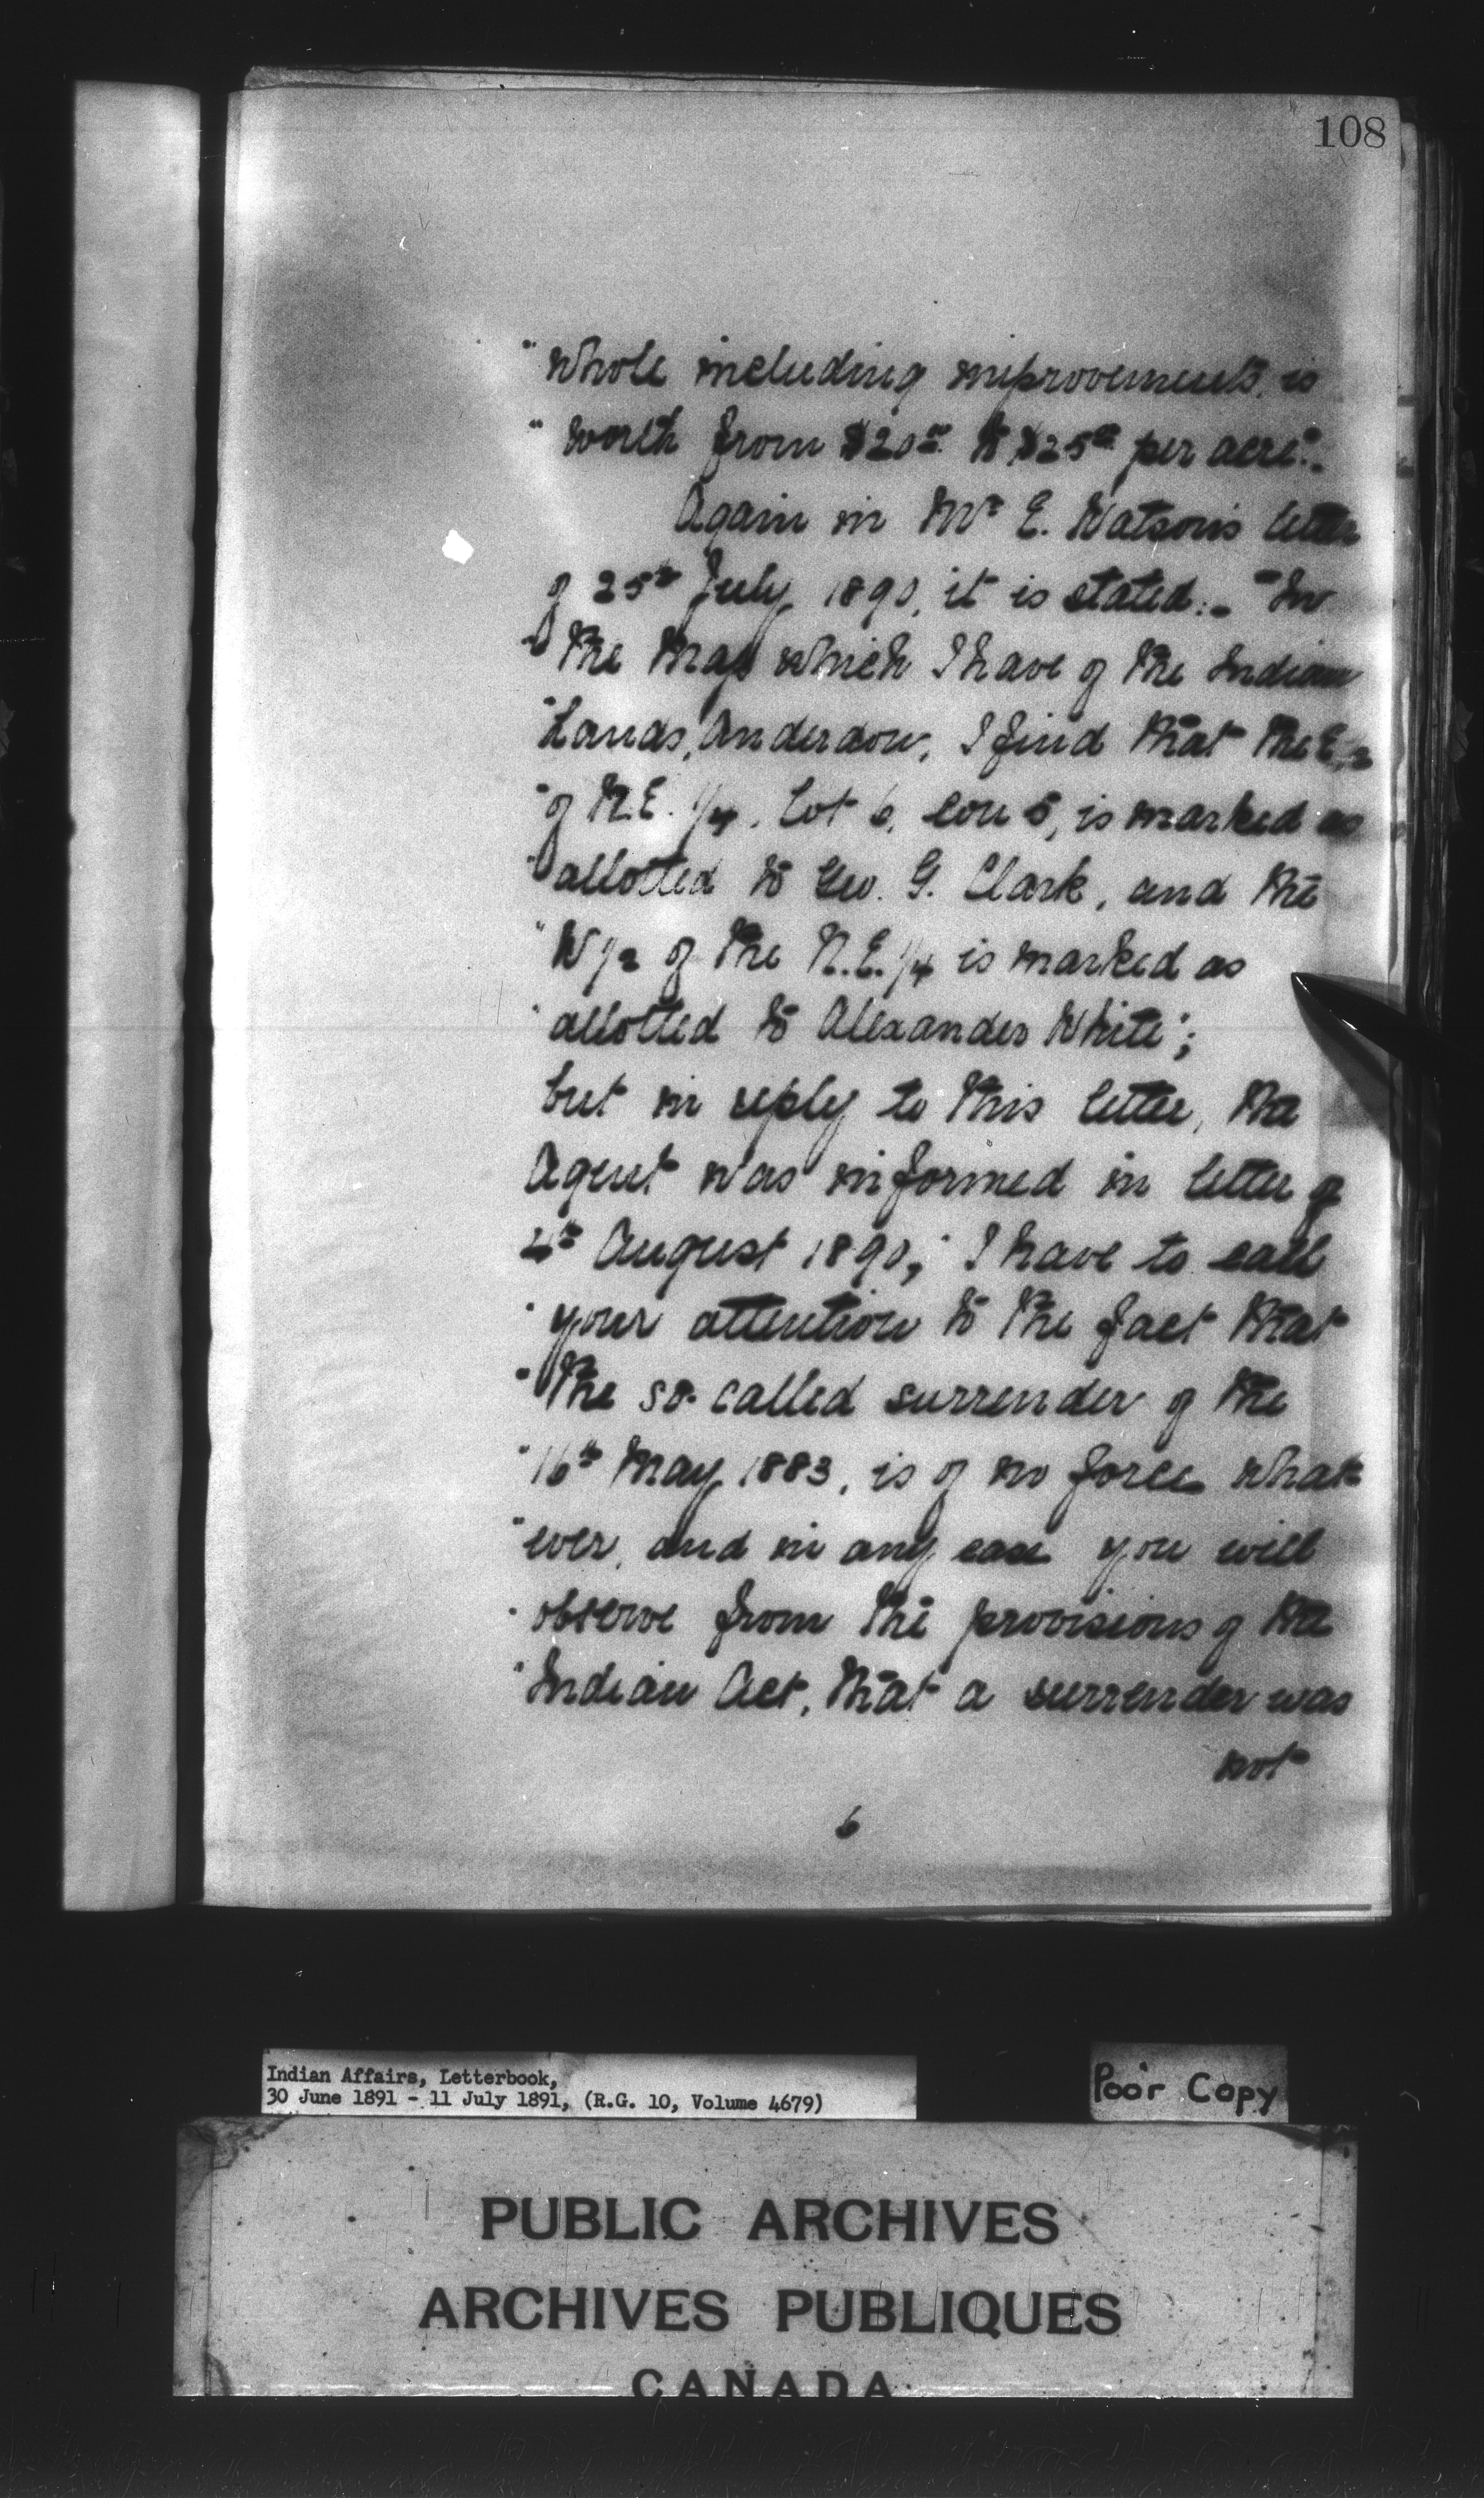 108
"whole including improvements, is
"worth from $20.00 to $25.00 per acre".
Again in Mr E. Watson's letter
of 25th July, 1890, it is stated:- "In
"the map which I have of the Indian
"Lands, Anderdon, I find that the E 1/2
"of N.E. 1/4, Lot 6, con 5, is marked as
"allotted to Geo. G. Clark, and the
"W 1/2 of the N.E. 1/4 is marked as
"allotted to Alexander White";
but in reply to this letter, the
Agent was informed in letter of
4th August 1890, "I have to call
"your attention to the fact that
"the so-called surrender of the
"16th May, 1883, is of no force what
"ever, and in any case you will
"observe from the provisions of the
"Indian Act, that a surrender was
not
6
Indian Affairs, Letterbook,
30 June 1891 - 11 July 1891, (R.G. 10, Volume 4679)
Poor Copy
PUBLIC ARCHIVES
ARCHIVES PUBLIQUES
CANADA